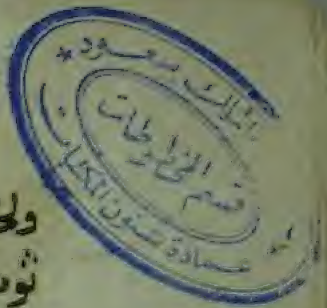 الملك سعود *
قسم المخطوطات
* عمادة شئون المكتبات